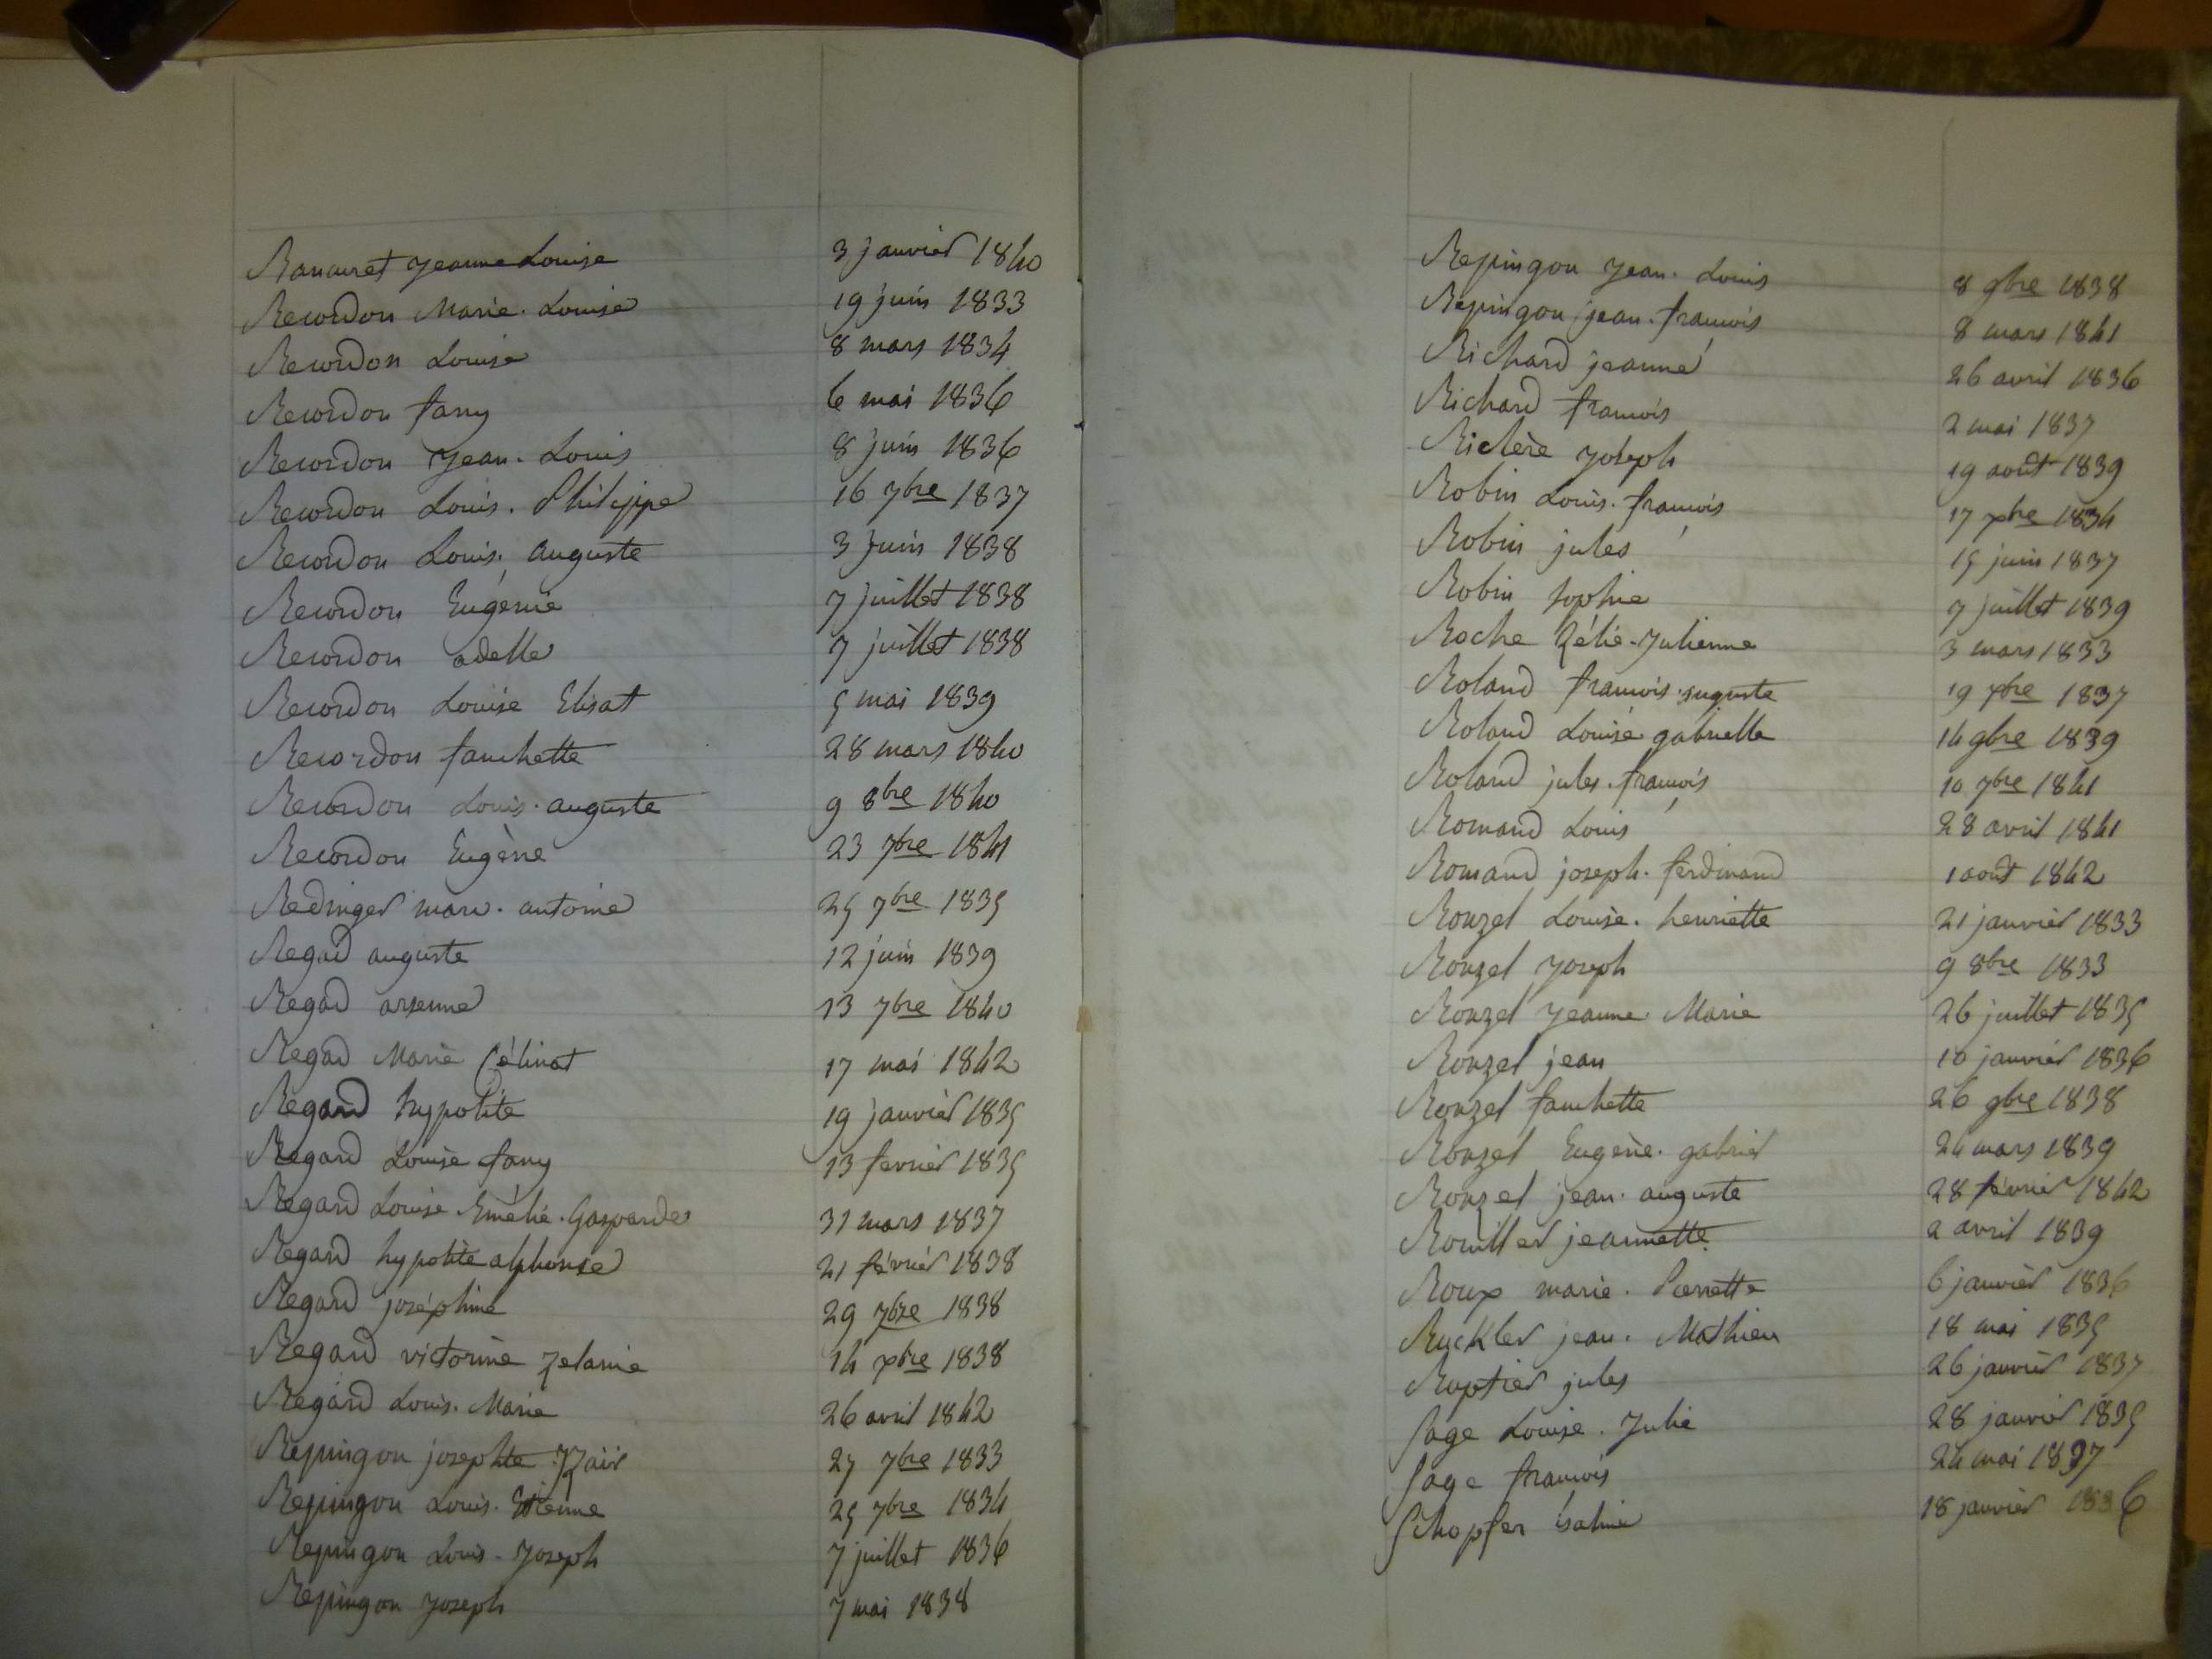 Ranauret Jeanne Louise 3 janvier 1840
Recordon Marie. Louise 19 juin 1833
Recordon Louise 8 mars 1834
Recordon fany 6 mai 1836
Recordon Jean. Louis 8 juin 1836
Recordon Louis. Philippe 16 7bre 1837
Recordon Louis. auguste 3 juin 1838
Recordon Eugénie 7 juillet 1838
Recordon adelle 7 juillet 1838
Recordon Louise Elisat 5 mai 1839
Recordon fanchette 28 mars 1840
Recordon Louis. auguste 9 8bre 1840
Recordon Eugène 23 7bre 1841
Redinger marc. antoine 25 7bre 1835
Regad auguste 12 juin 1839
Regad arsenne 13 7bre 1840
Regad Marie Célinat 17 mai 1842
Regard hypolite 19 janvier 1835
Regard Louise fany 13 fevrier 1835
Regard Louise Emélie. Gasparde 31 mars 1837
Regard hypolite alphonse 21 février 1838
Regard joséphine 29 7bre 1838
Regard victorine Zelanie 14 xbre 1838
Regard Louis. Marie 26 avril 1842
Repingon josephte 27 7bre 1833
Repingon Louis. Etienne 25 7bre 1834
Repingon Louis. Joseph 7 juillet 1836
Repingon Joseph 7 mai 1838
Repingon Jean. Louis 8 9bre 1838
Repingon jean. francois 8 mars 1841
Richard jeanne 26 avril 1836
Richard francois 2 mai 1837
Riclère Joseph 19 août 1839
Robin Louis. francois 17 xbre 1834
Robin jules 15 juin 1837
Robin sophie 7 juillet 1839
Roche Zélie-Julienne 3 mars 1833
Roland francois auguste 19 xbre 1837
Roland Louise gabrielle 14 9bre 1839
Roland jules. francois 10 7bre 1841
Romand Louis 28 avril 1841
Romand joseph. ferdinand 1 août 1842
Ronzel Louise. henriette 21 janvier 1833
Ronzel Joseph 9 8bre 1833
Ronzel Jeanne. Marie 26 juillet 1835
Ronzel jean 10 janvier 1836
Ronzel fanchette 26 9bre 1838
Ronzel Eugène. gabriel 24 mars 1839
Ronzel jean. auguste 28 février 1842
Rouiller jeannette 2 avril 1839
Roux marie. Pierrette 6 janvier 1836
Ruckler jean. Mathieu 18 mai 1835
Ruptier jules 26 janvier 1837
Sage Louise. Julie 28 janvier 1835
Sage francois 24 mai 1837
Schopfer isaline 18 janvier 1836